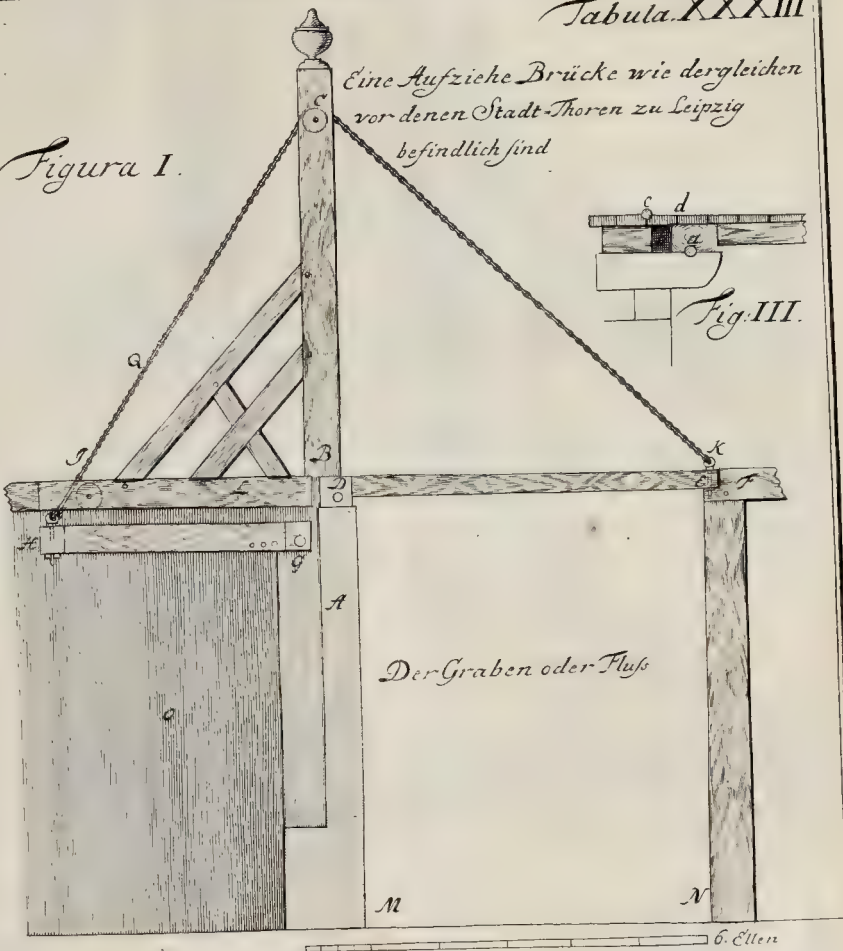 Tabula. XXXIII
Eine Aufziehe Brücke wie dergleichen
vor denen Stadt-Thoren zu Leipzig
befindlich sind
Figura I.
C
c d
a
Fig: III.
Q
K
J
B
L
D
E F
H
G
A
Der Graben oder Fluſs
O
M
N
6. Ellen